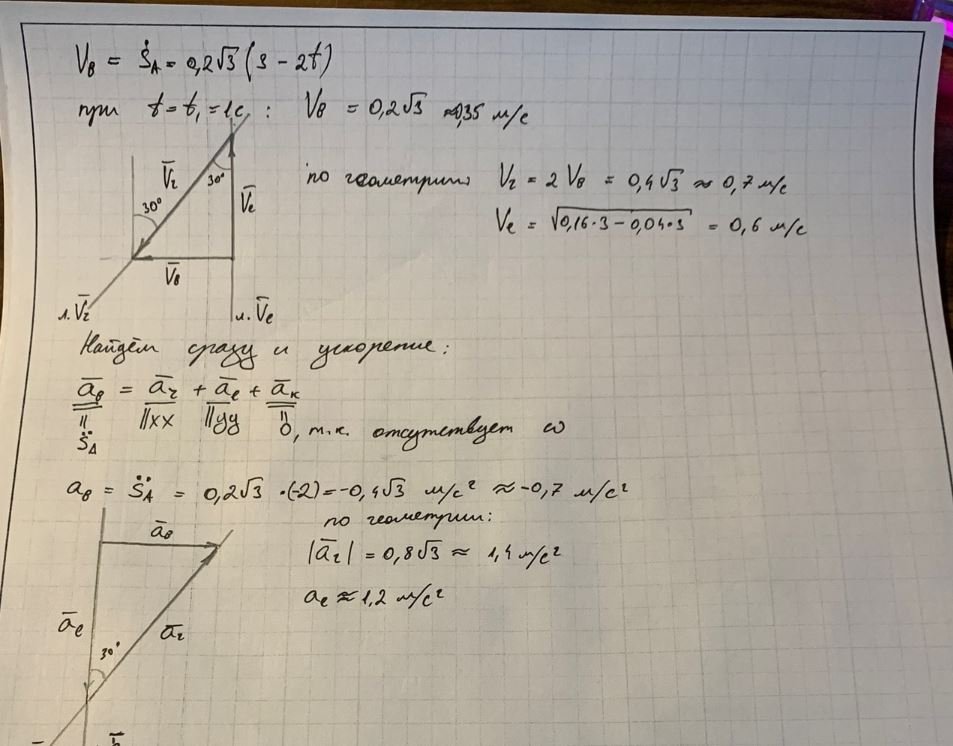 V_B = Ṡ_A = 0,2√3 (3 - 2t)
при t = t₁ = 1c : V_B = 0,2√3 ≈ 0,35 м/с
V̄_r 30° V̄_e
30°
по геометрии V_r = 2 V_B = 0,4√3 ≈ 0,7 м/с
V_e = √(0,16·3 - 0,04·3) = 0,6 м/с
V̄_B
л. V̄_r л. V̄_e
Найдём сразу и ускорение:
ā_B = ā_r + ā_e + ā_к
|| ||xx ||yy ||
S̈_A 0, т.к. отсутствует ω
a_B = S̈_A = 0,2√3 ·(-2) = -0,4√3 м/с² ≈ -0,7 м/с²
по геометрии:
ā_B
|ā_r| = 0,8√3 ≈ 1,4 м/с²
a_e ≈ 1,2 м/с²
ā_e 30° ā_r